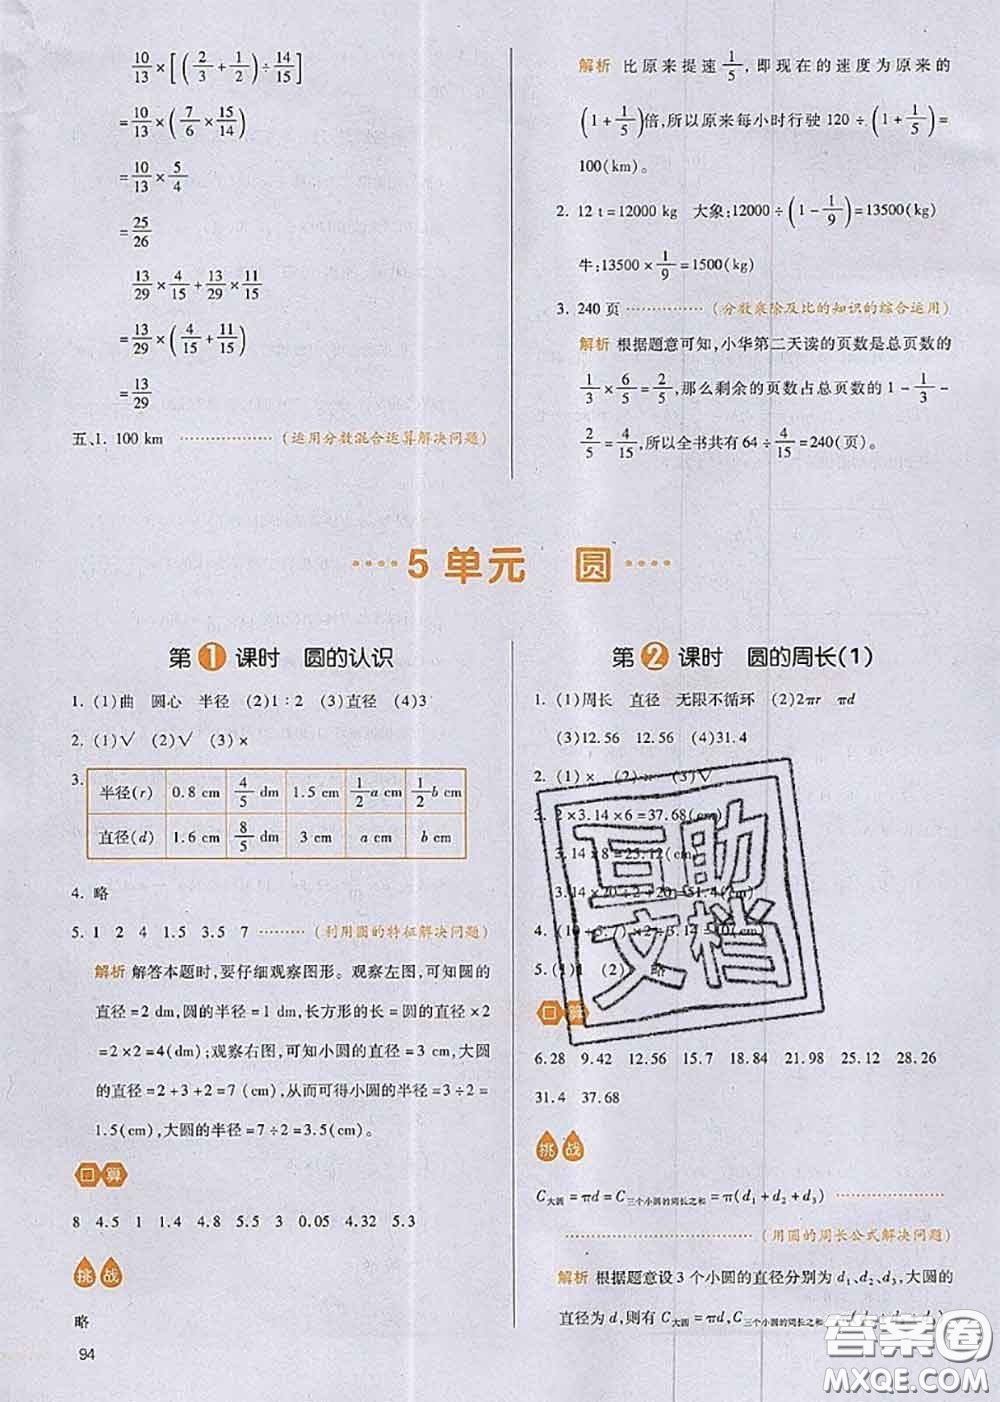 10/13×[(2/3+1/2)÷14/15]
=10/13×(7/6×15/14)
=10/13×5/4
=25/26
13/29×4/15+13/29×11/15
=13/29×(4/15+11/15)
=13/29
五、1. 100 km ………………(运用分数混合运算解决问题)
解析 比原来提速1/5,即现在的速度为原来的
(1+1/5)倍,所以原来每小时行驶 120÷(1+1/5)=
100(km)。
2. 12 t=12000 kg 大象:12000÷(1-1/9)=13500(kg)
牛:13500×1/9=1500(kg)
3. 240 页 ……………(分数乘除及比的知识的综合运用)
解析 根据题意可知,小华第二天读的页数是总页数的
1/3×6/5=2/5,那么剩余的页数占总页数的 1-1/3-
2/5=4/15,所以全书共有 64÷4/15=240(页)。
5 单元 圆
第1课时 圆的认识
1. (1)曲 圆心 半径 (2)1∶2 (3)直径 (4)3
2. (1)√ (2)√ (3)×
3. 半径(r) 0.8 cm 4/5 dm 1.5 cm 1/2 a cm 1/2 b cm
直径(d) 1.6 cm 8/5 dm 3 cm a cm b cm
4. 略
5. 1 2 4 1.5 3.5 7 ………(利用圆的特征解决问题)
解析 解答本题时,要仔细观察图形。观察左图,可知圆的
直径=2 dm,圆的半径=1 dm,长方形的长=圆的直径×2
=2×2=4(dm);观察右图,可知小圆的直径=3 cm,大圆
的直径=2+3+2=7 (cm),从而可得小圆的半径=3÷2=
1.5(cm),大圆的半径=7÷2=3.5(cm)。
口算
8 4.5 1 1.4 4.8 5.5 3 0.05 4.32 5.3
挑战
略
94
第2课时 圆的周长(1)
1. (1)周长 直径 无限不循环 (2)2πr πd
(3)12.56 12.56 (4)31.4
2. (1)× (2)× (3)√
3. 2×3.14×6=37.68(cm)
3.14×8=25.12(cm)
3.14×20÷2+20=51.4(cm)
4. (10+3.7)×3.14=
5. (1)1 (2) 略
口算
6.28 9.42 12.56 15.7 18.84 21.98 25.12 28.26
31.4 37.68
挑战
C大圆=πd=C三个小圆的周长之和=π(d₁+d₂+d₃) ………………
………………………(用圆的周长公式解决问题)
解析 根据题意设 3 个小圆的直径分别为 d₁、d₂、d₃,大圆的
直径为 d,则有 C大圆=πd,C三个小圆的周长之和=
互助文档
答案圈
MXQE.COM